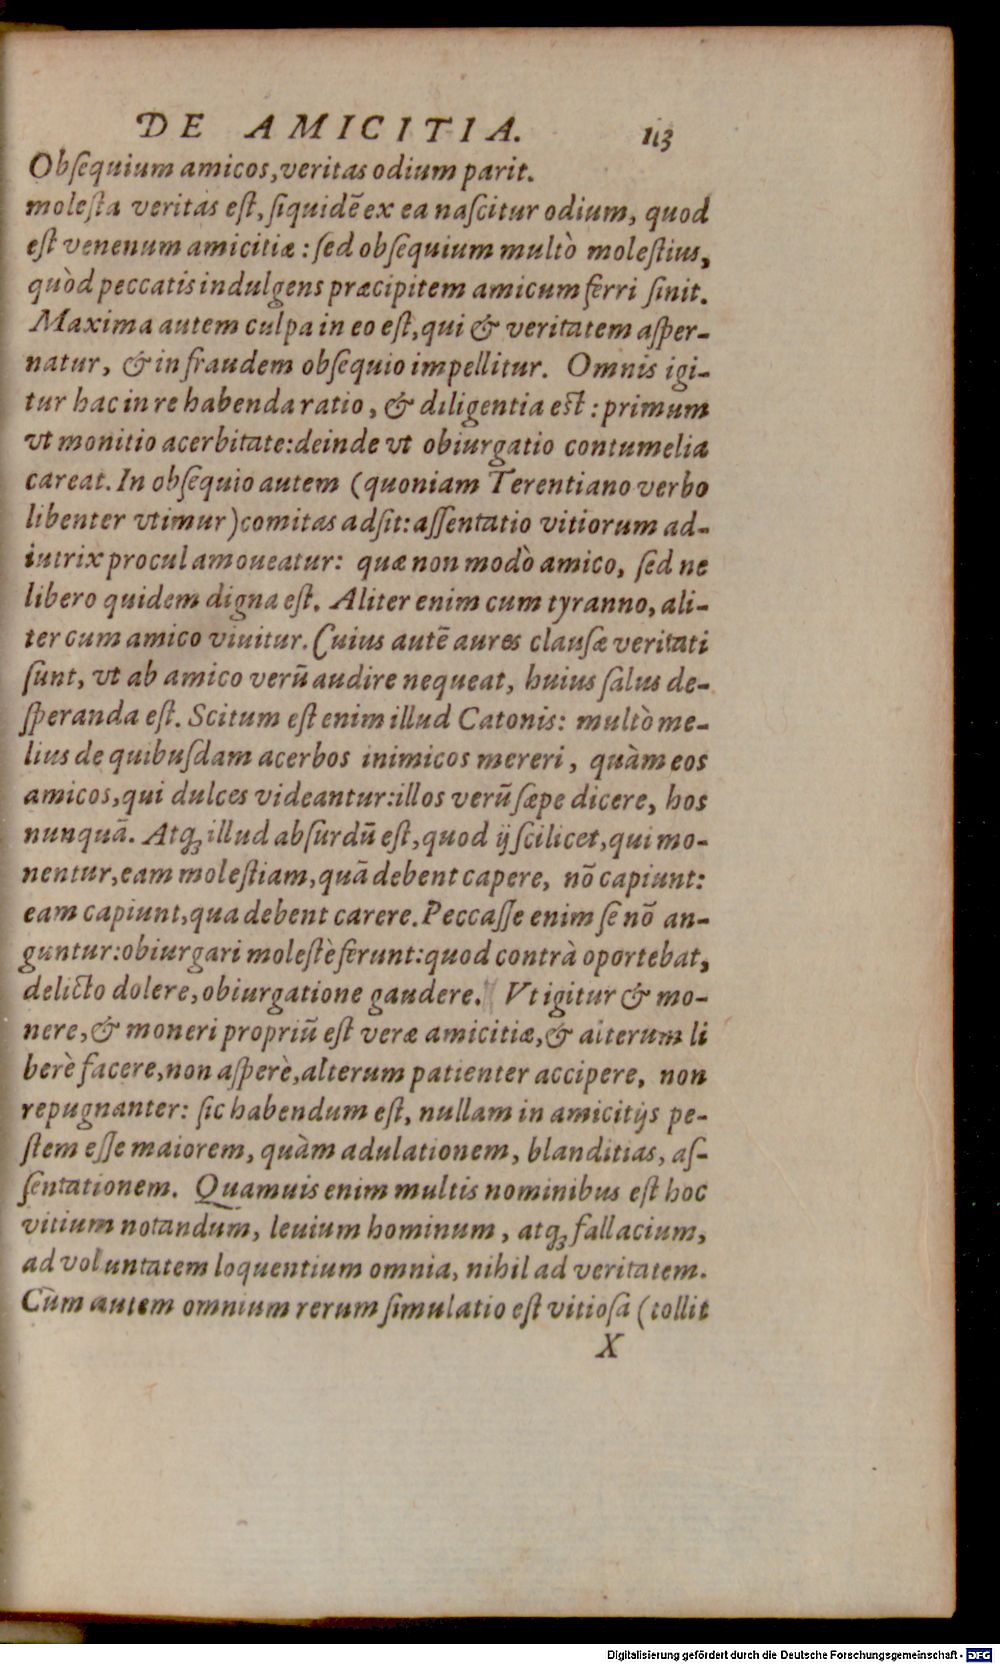 DE AMICITIA. 113
Obſequium amicos, veritas odium parit.
moleſta veritas eſt, ſiquidē ex ea naſcitur odium, quod
eſt venenum amicitiæ : ſed obſequium multò moleſtius,
quòd peccatis indulgens præcipitem amicum ferri ſinit.
Maxima autem culpa in eo eſt, qui & veritatem aſper-
natur, & in fraudem obſequio impellitur. Omnis igi-
tur hac in re habenda ratio, & diligentia est : primum
vt monitio acerbitate: deinde vt obiurgatio contumelia
careat. In obſequio autem (quoniam Terentiano verbo
libenter vtimur) comitas adſit: aſſentatio vitiorum ad-
iutrix procul amoueatur: quæ non modò amico, ſed ne
libero quidem digna eſt. Aliter enim cum tyranno, ali-
ter cum amico viuitur. Cuius autē aures clauſæ veritati
ſunt, vt ab amico verū audire nequeat, huius ſalus de-
ſperanda eſt. Scitum eſt enim illud Catonis: multò me-
lius de quibuſdam acerbos inimicos mereri, quàm eos
amicos, qui dulces videantur: illos verū ſæpe dicere, hos
nunquā. Atq; illud abſurdū eſt, quod ij ſcilicet, qui mo-
nentur, eam moleſtiam, quā debent capere, nō capiunt:
eam capiunt, qua debent carere. Peccaſſe enim ſe nō an-
guntur: obiurgari moleſtè ferunt: quod contrà oportebat,
delicto dolere, obiurgatione gaudere. Vt igitur & mo-
nere, & moneri propriū eſt veræ amicitiæ, & alterum li
berè facere, non aſperè, alterum patienter accipere, non
repugnanter: ſic habendum eſt, nullam in amicitijs pe-
ſtem eſſe maiorem, quàm adulationem, blanditias, aſ-
ſentationem. Quamuis enim multis nominibus eſt hoc
vitium notandum, leuium hominum, atq; fallacium,
ad voluntatem loquentium omnia, nihil ad veritatem.
Cùm autem omnium rerum ſimulatio eſt vitioſa (tollit
X
Digitalisierung gefördert durch die Deutsche Forschungsgemeinschaft - DFG